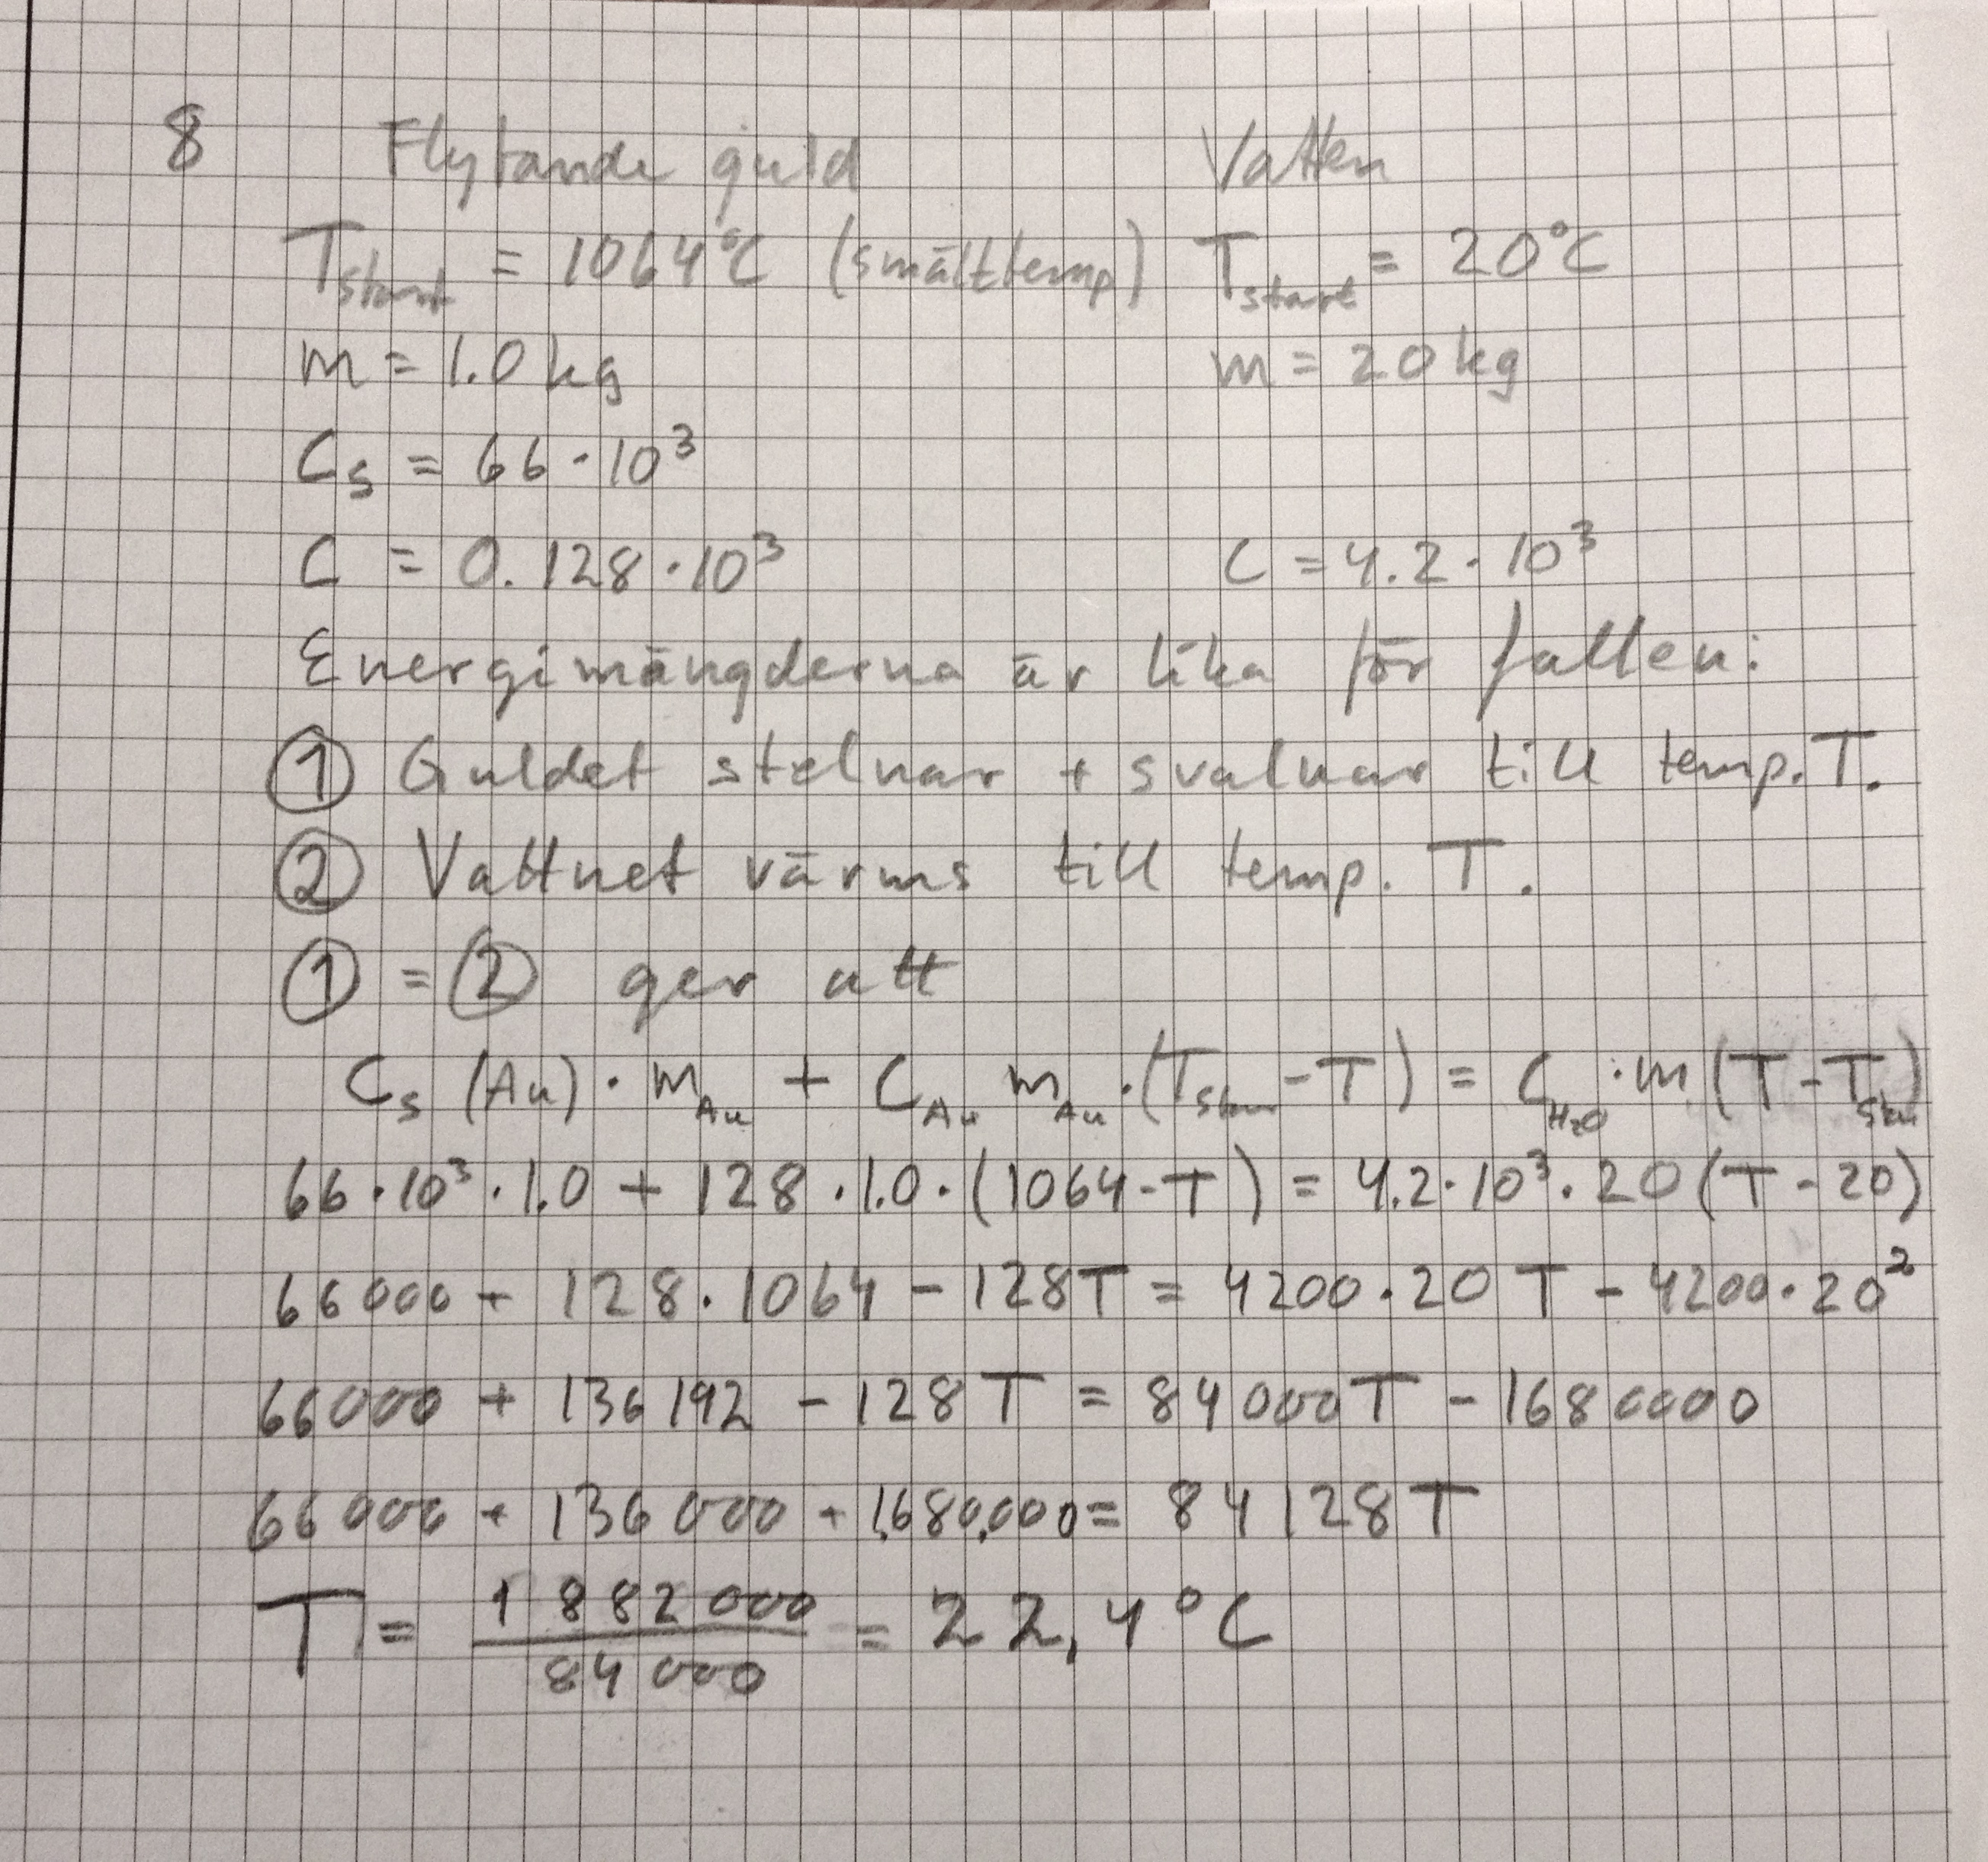 8 Flytande guld Vatten
Tstart = 1064°C (smälttemp) Tstart = 20°C
m = 1.0 kg m = 20 kg
Cs = 66 · 10³
C = 0.128 · 10³ C = 4.2 · 10³
Energimängderna är lika för fallen:
① Guldet stelnar + svalnar till temp. T.
② Vattnet värms till temp. T.
① = ② ger att
Cs (Au) · mAu + CAu mAu · (Tstart - T) = CH₂O · m (T - Tstart)
66 · 10³ · 1.0 + 128 · 1.0 · (1064 - T) = 4.2 · 10³ · 20 (T - 20)
66000 + 128 · 1064 - 128T = 4200 · 20 T - 4200 · 20²
66000 + 136192 - 128T = 84000T - 1680000
66000 + 136000 + 1,680,000 = 84128T
T = 1882000 / 84000 = 22,4°C